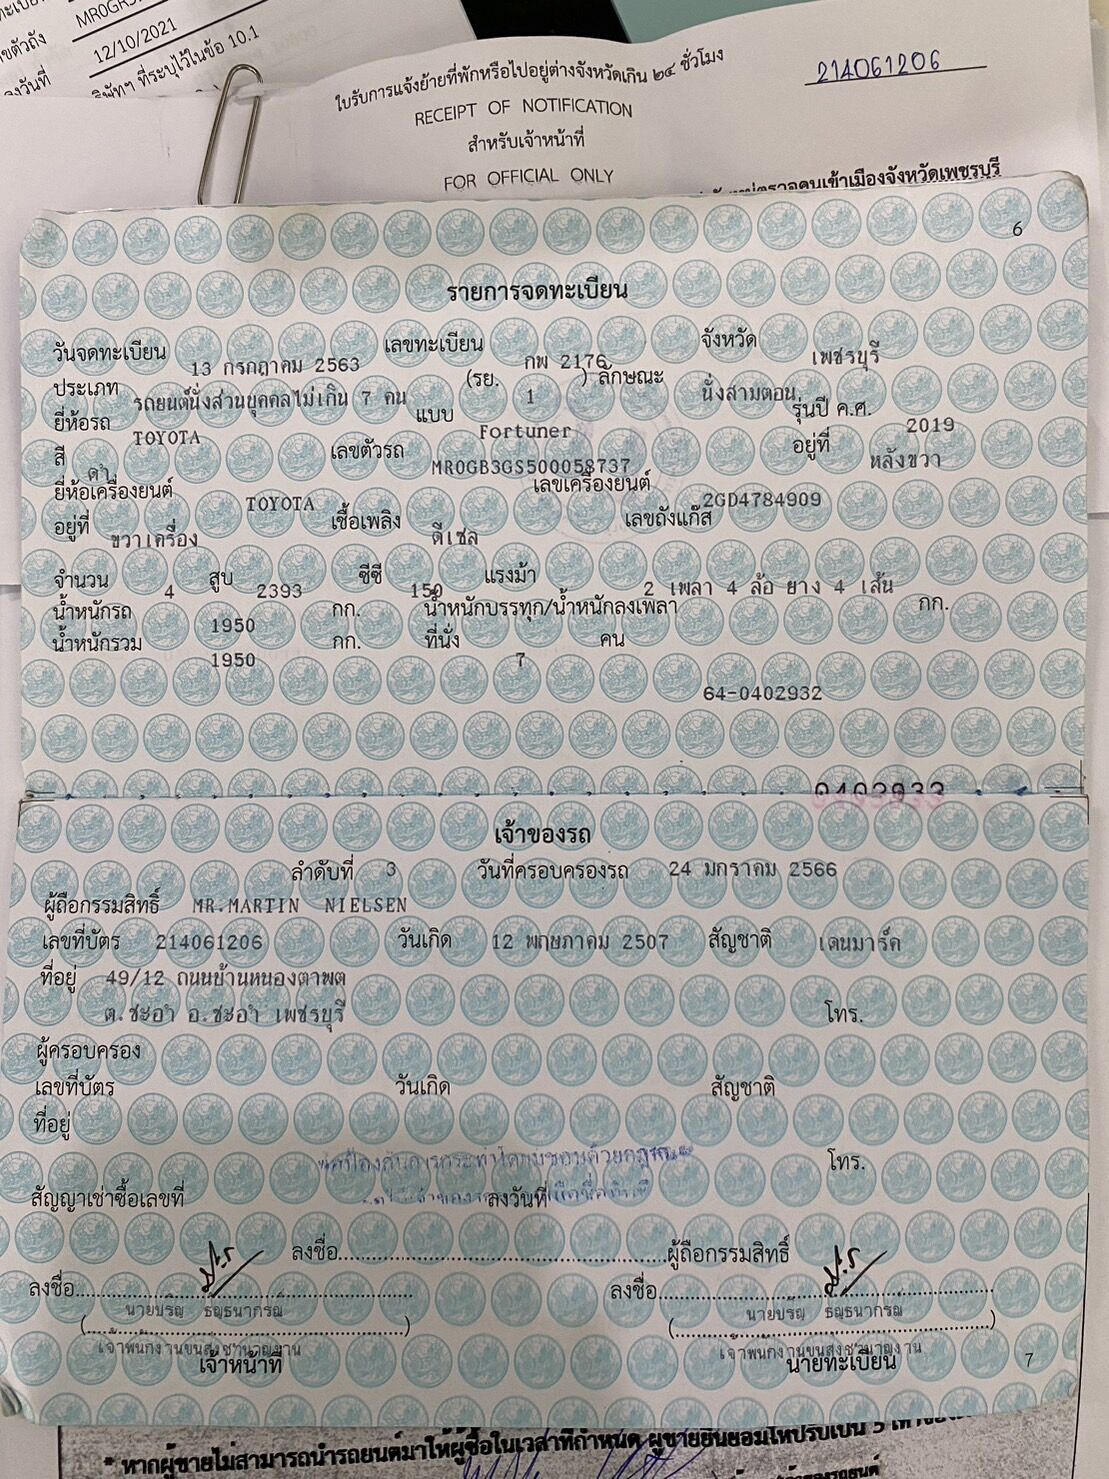 12/10/2021
ใบรับการแจ้งย้ายที่พักหรือไปอยู่ต่างจังหวัดเกิน ๒๔ ชั่วโมง
214061206
RECEIPT OF NOTIFICATION
สำหรับเจ้าหน้าที่
FOR OFFICIAL ONLY
6
รายการจดทะเบียน
วันจดทะเบียน 13 กรกฎาคม 2563 เลขทะเบียน กพ 2176 จังหวัด เพชรบุรี
ประเภท รถยนต์นั่งส่วนบุคคลไม่เกิน 7 คน (รย. 1 ) ลักษณะ นั่งสามตอน
ยี่ห้อรถ TOYOTA แบบ Fortuner รุ่นปี ค.ศ. 2019
สี ดำ เลขตัวรถ MR0GB3GS500058737 อยู่ที่ หลังขวา
ยี่ห้อเครื่องยนต์ TOYOTA เลขเครื่องยนต์ 2GD4784909
อยู่ที่ ขวาเครื่อง เชื้อเพลิง ดีเซล เลขถังแก๊ส
จำนวน 4 สูบ 2393 ซีซี 150 แรงม้า 2 เพลา 4 ล้อ ยาง 4 เส้น
น้ำหนักรถ 1950 กก. น้ำหนักบรรทุก/น้ำหนักลงเพลา กก.
น้ำหนักรวม 1950 กก. ที่นั่ง 7 คน
64-0402932
0402933
เจ้าของรถ
ลำดับที่ 3 วันที่ครอบครองรถ 24 มกราคม 2566
ผู้ถือกรรมสิทธิ์ MR.MARTIN NIELSEN
เลขที่บัตร 214061206 วันเกิด 12 พฤษภาคม 2507 สัญชาติ เดนมาร์ค
ที่อยู่ 49/12 ถนนบ้านหนองตาพต
ต.ชะอำ อ.ชะอำ เพชรบุรี โทร.
ผู้ครอบครอง
เลขที่บัตร วันเกิด สัญชาติ
ที่อยู่
โทร.
สัญญาเช่าซื้อเลขที่ ลงวันที่
ลงชื่อ............................................................ผู้ถือกรรมสิทธิ์
ลงชื่อ............................................................ ลงชื่อ............................................................
นายปริญ ธญธนากรณ์ นายปริญ ธญธนากรณ์
(............................................................) (............................................................)
เจ้าพนักงานขนส่งชำนาญงาน เจ้าพนักงานขนส่งชำนาญงาน
เจ้าหน้าที่ นายทะเบียน
7